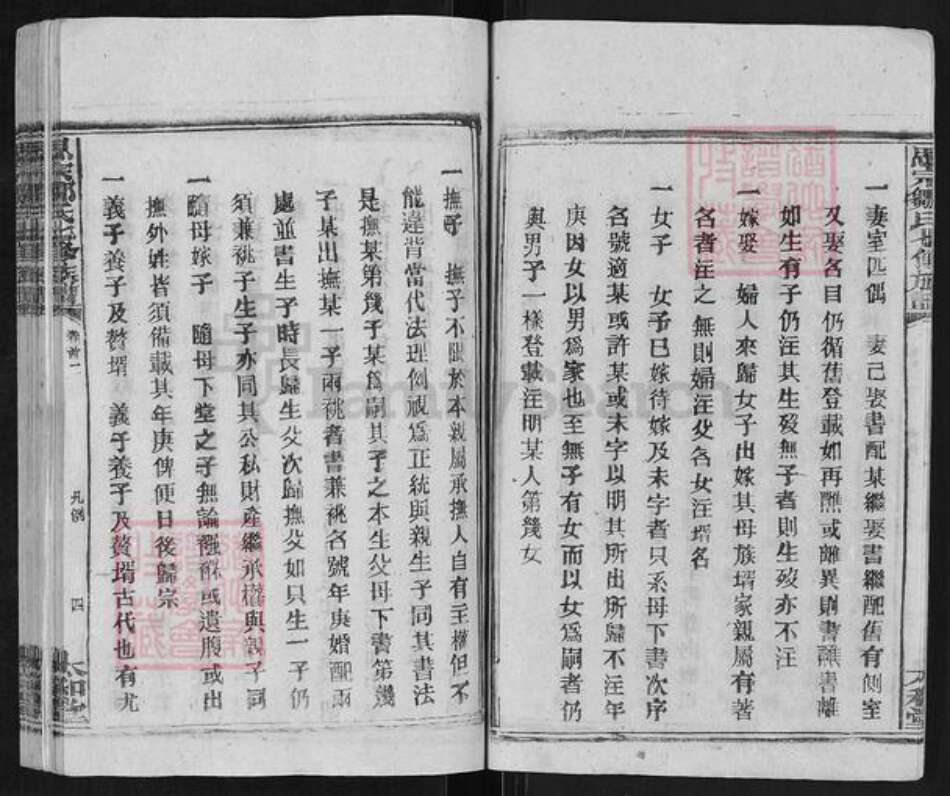 一妻室匹偶　妻已娶書配某繼娶書繼配舊有側室
又娶名目仍循舊登載如再醮或離異則書醮書離
如生有子仍注其生歿無子者則生歿亦不注
一嫁娶　婦人來歸女子出嫁其母族壻家親屬有著
名者注之無則婦注父名女注壻名
一女子　女子已嫁待嫁及未字者只系母下書次序
名號適某或許某或未字以明其所出所歸不注年
庚因女以男爲家也至無子有女而以女爲嗣者仍
與男子一樣登載注明某人第幾女
一撫子　撫子不限於本親屬承撫人自有主權但不
能違背當代法理例視爲正統與親生子同其書法
是撫某第幾子某爲嗣其子之本生父母下書第幾
子某出撫某一子兩祧者書兼祧名號年庚婚配兩
處並書生子時長歸生父次歸撫父如只生一子仍
須兼祧子生子亦同其公私財產繼承權與親子同
一隨母嫁子　隨母下堂之子無論襁褓或遺腹或出
撫外姓皆須備載其年庚俾便日後歸宗
一義子養子及贅壻　義子養子及贅壻古代也有尤
卷首一
凡例
四
太和堂
FamilySearch